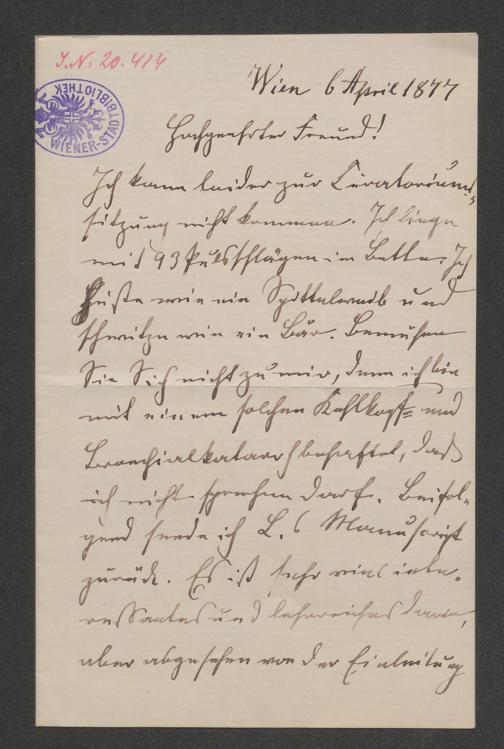 J.N. 20.414
WIENER-STADTBIBLIOTHEK
Wien 6 April 1877
Hochgeehrter Freund!
Ich kann leider zur Curatoriums-
sitzung nicht kommen. Ich liege
mit 93 Pulsschlägen im Bette. Ich
huste wie ein Spittelweib und
schwitze wie ein Bär. Bemühen
Sie Sich nicht zu mir, denn ich bin
mit einem solchen Kehlkopf= und
Bronchialkatarrh behaftet, daß
ich nicht sprechen darf. Beifol-
gend sende ich L.'s Manuscript
zurück. Es ist sehr viel inte-
ressantes und lehrreiches darin,
aber abgesehen von der Einleitung